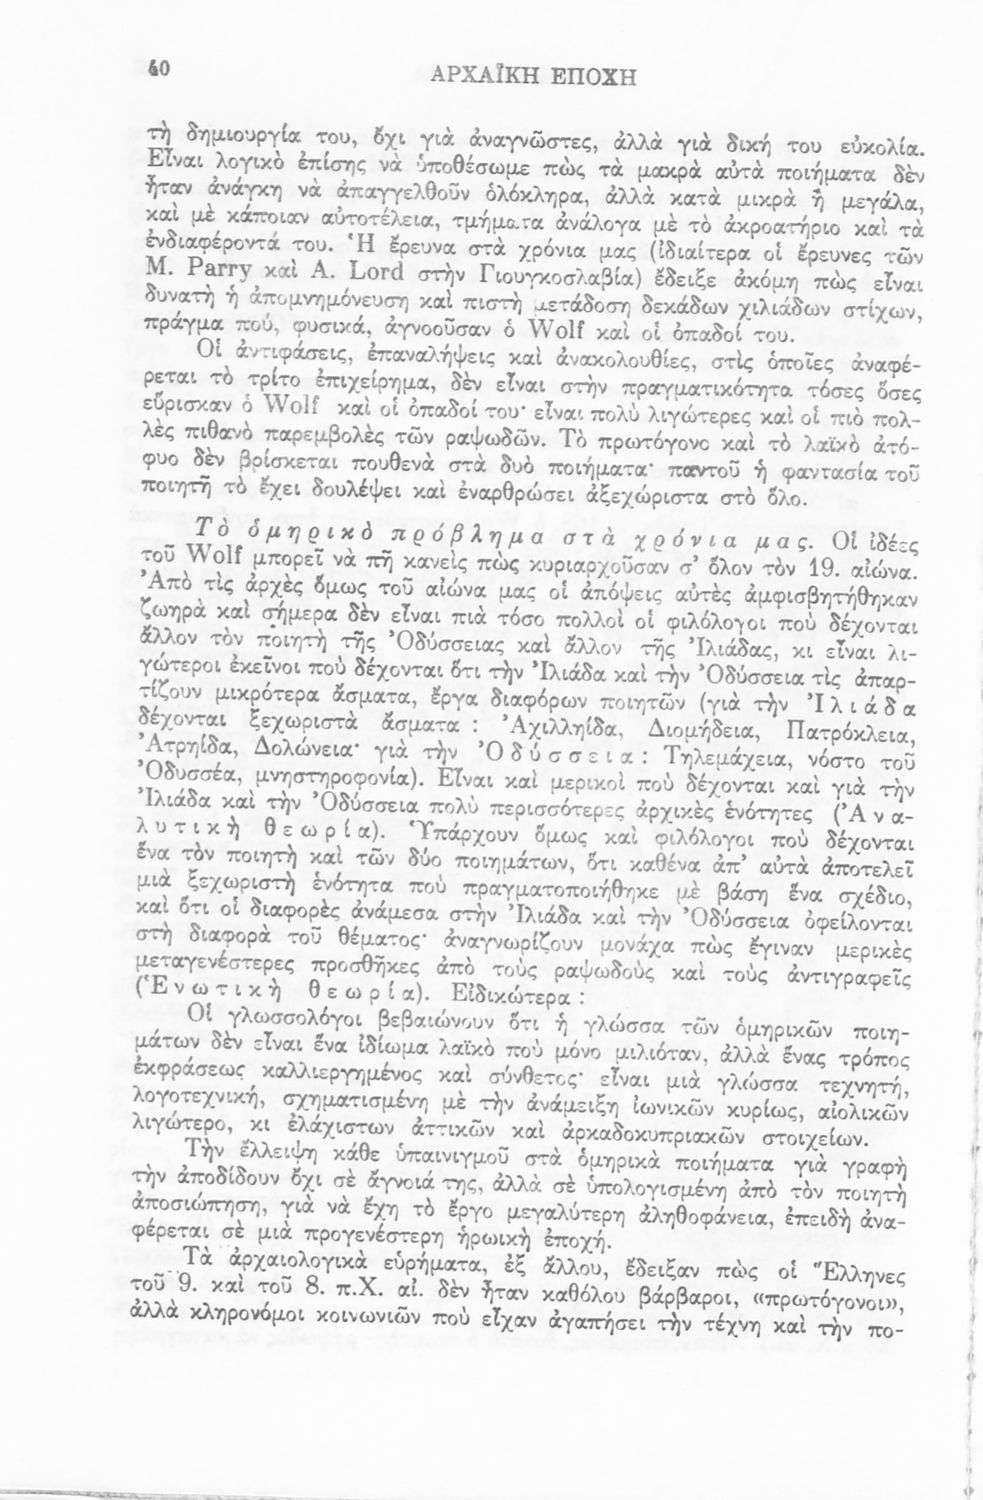 40
ΑΡΧΑΪΚΗ ΕΠΟΧΗ
τὴ δημιουργία του, ὄχι γιὰ ἀναγνῶστες, ἀλλὰ γιὰ δική του εὐκολία.
Εἶναι λογικὸ ἐπίσης νὰ ὑποθέσωμε πὼς τὰ μακρὰ αὐτὰ ποιήματα δὲν
ἦταν ἀνάγκη νὰ ἀπαγγελθοῦν ὁλόκληρα, ἀλλὰ κατὰ μικρὰ ἢ μεγάλα,
καὶ μὲ κάποιαν αὐτοτέλεια, τμήματα ἀνάλογα μὲ τὸ ἀκροατήριο καὶ τὰ
ἐνδιαφέροντά του. Ἡ ἔρευνα στὰ χρόνια μας (ἰδιαίτερα οἱ ἔρευνες τῶν
M. Parry καὶ A. Lord στὴν Γιουγκοσλαβία) ἔδειξε ἀκόμη πὼς εἶναι
δυνατὴ ἡ ἀπομνημόνευση καὶ πιστὴ μετάδοση δεκάδων χιλιάδων στίχων,
πράγμα πού, φυσικά, ἀγνοοῦσαν ὁ Wolf καὶ οἱ ὀπαδοί του.
Οἱ ἀντιφάσεις, ἐπαναλήψεις καὶ ἀνακολουθίες, στὶς ὁποῖες ἀναφέ-
ρεται τὸ τρίτο ἐπιχείρημα, δὲν εἶναι στὴν πραγματικότητα τόσες ὅσες
εὕρισκαν ὁ Wolf καὶ οἱ ὀπαδοί του· εἶναι πολὺ λιγώτερες καὶ οἱ πιὸ πολ-
λὲς πιθανὸ παρεμβολὲς τῶν ραψωδῶν. Τὸ πρωτόγονο καὶ τὸ λαϊκὸ ἀτό-
φυο δὲν βρίσκεται πουθενὰ στὰ δυὸ ποιήματα· παντοῦ ἡ φαντασία τοῦ
ποιητῆ τὸ ἔχει δουλέψει καὶ ἐναρθρώσει ἀξεχώριστα στὸ ὅλο.
Τὸ ὁμηρικὸ πρόβλημα στὰ χρόνια μας. Οἱ ἰδέες
τοῦ Wolf μπορεῖ νὰ πῆ κανεὶς πὼς κυριαρχοῦσαν σ' ὅλον τὸν 19. αἰώνα.
Ἀπὸ τὶς ἀρχὲς ὅμως τοῦ αἰώνα μας οἱ ἀπόψεις αὐτὲς ἀμφισβητήθηκαν
ζωηρὰ καὶ σήμερα δὲν εἶναι πιὰ τόσο πολλοὶ οἱ φιλόλογοι ποὺ δέχονται
ἄλλον τὸν ποιητὴ τῆς Ὀδύσσειας καὶ ἄλλον τῆς Ἰλιάδας, κι εἶναι λι-
γώτεροι ἐκεῖνοι ποὺ δέχονται ὅτι τὴν Ἰλιάδα καὶ τὴν Ὀδύσσεια τὶς ἀπαρ-
τίζουν μικρότερα ἄσματα, ἔργα διαφόρων ποιητῶν (γιὰ τὴν Ἰλιάδα
δέχονται ξεχωριστὰ ἄσματα : Ἀχιλληίδα, Διομήδεια, Πατρόκλεια,
Ἀτρηίδα, Δολώνεια· γιὰ τὴν Ὀδύσσεια: Τηλεμάχεια, νόστο τοῦ
Ὀδυσσέα, μνηστηροφονία). Εἶναι καὶ μερικοὶ ποὺ δέχονται καὶ γιὰ τὴν
Ἰλιάδα καὶ τὴν Ὀδύσσεια πολὺ περισσότερες ἀρχικὲς ἑνότητες (Ἀνα-
λυτικὴ θεωρία). Ὑπάρχουν ὅμως καὶ φιλόλογοι ποὺ δέχονται
ἕνα τὸν ποιητὴ καὶ τῶν δύο ποιημάτων, ὅτι καθένα ἀπ' αὐτὰ ἀποτελεῖ
μιὰ ξεχωριστὴ ἑνότητα ποὺ πραγματοποιήθηκε μὲ βάση ἕνα σχέδιο,
καὶ ὅτι οἱ διαφορὲς ἀνάμεσα στὴν Ἰλιάδα καὶ τὴν Ὀδύσσεια ὀφείλονται
στὴ διαφορὰ τοῦ θέματος· ἀναγνωρίζουν μονάχα πὼς ἔγιναν μερικὲς
μεταγενέστερες προσθῆκες ἀπὸ τοὺς ραψωδοὺς καὶ τοὺς ἀντιγραφεῖς
(Ἑνωτικὴ θεωρία). Εἰδικώτερα :
Οἱ γλωσσολόγοι βεβαιώνουν ὅτι ἡ γλώσσα τῶν ὁμηρικῶν ποιη-
μάτων δὲν εἶναι ἕνα ἰδίωμα λαϊκὸ ποὺ μόνο μιλιόταν, ἀλλὰ ἕνας τρόπος
ἐκφράσεως καλλιεργημένος καὶ σύνθετος· εἶναι μιὰ γλώσσα τεχνητή,
λογοτεχνική, σχηματισμένη μὲ τὴν ἀνάμειξη ἰωνικῶν κυρίως, αἰολικῶν
λιγώτερο, κι ἐλάχιστων ἀττικῶν καὶ ἀρκαδοκυπριακῶν στοιχείων.
Τὴν ἔλλειψη κάθε ὑπαινιγμοῦ στὰ ὁμηρικὰ ποιήματα γιὰ γραφὴ
τὴν ἀποδίδουν ὄχι σὲ ἄγνοιά της, ἀλλὰ σὲ ὑπολογισμένη ἀπὸ τὸν ποιητὴ
ἀποσιώπηση, γιὰ νὰ ἔχη τὸ ἔργο μεγαλύτερη ἀληθοφάνεια, ἐπειδὴ ἀνα-
φέρεται σὲ μιὰ προγενέστερη ἡρωικὴ ἐποχή.
Τὰ ἀρχαιολογικὰ εὑρήματα, ἐξ ἄλλου, ἔδειξαν πὼς οἱ Ἕλληνες
τοῦ 9. καὶ τοῦ 8. π.Χ. αἰ. δὲν ἦταν καθόλου βάρβαροι, «πρωτόγονοι»,
ἀλλὰ κληρονόμοι κοινωνιῶν ποὺ εἶχαν ἀγαπήσει τὴν τέχνη καὶ τὴν πο-